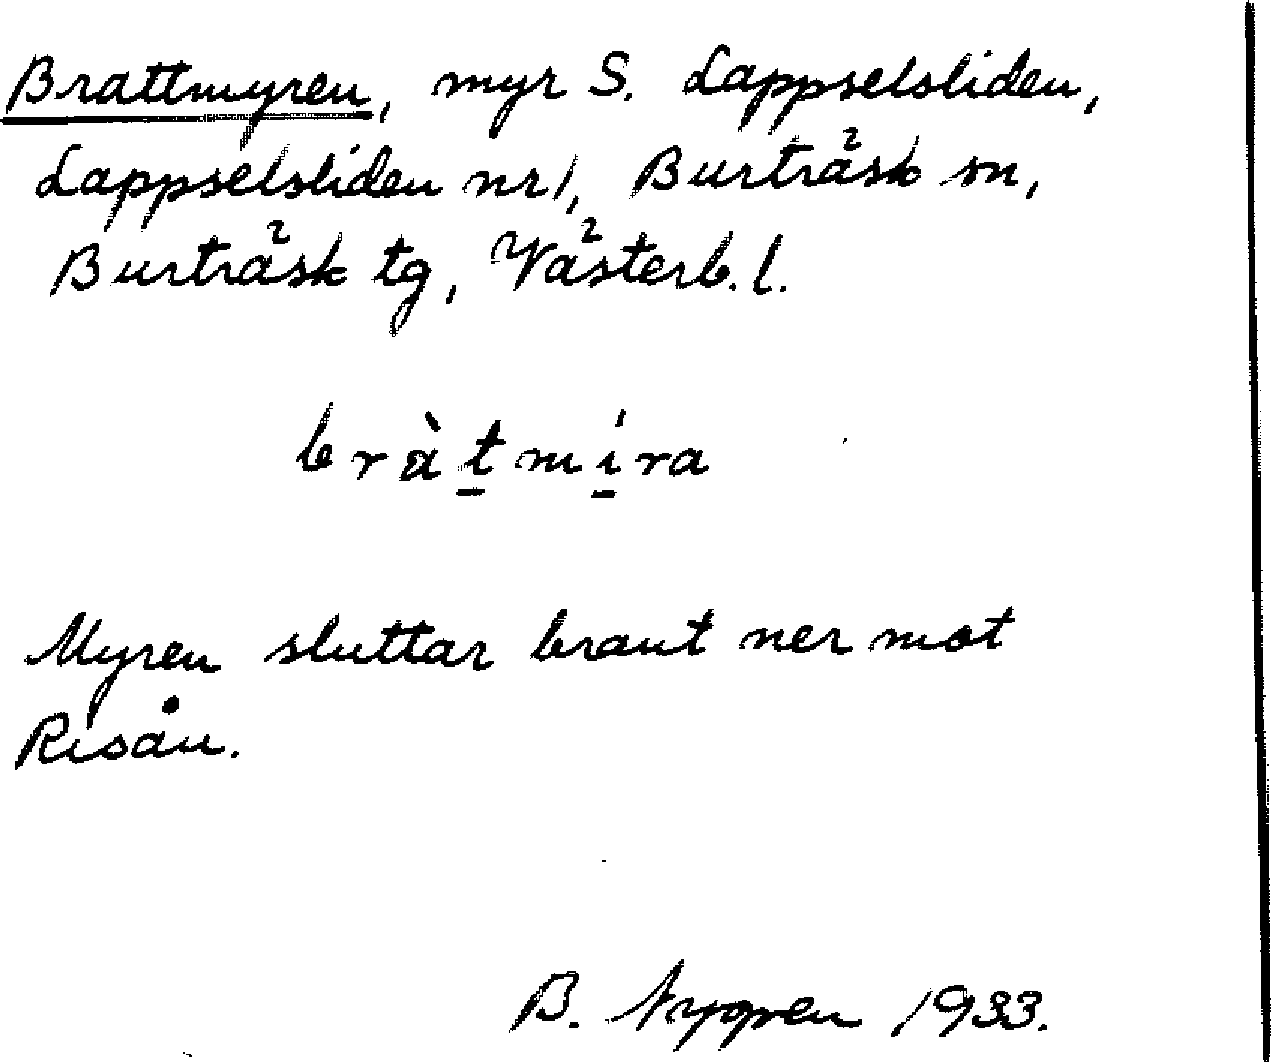 Brattmyren, myr S. Lappselsliden,
Lappselsliden nr 1, Burträsk sn,
Burträsk tg, Västerb. l.
bràt̠mí̠ra
Myren sluttar brant ner mot
Risån.
B. Nygren 1933.